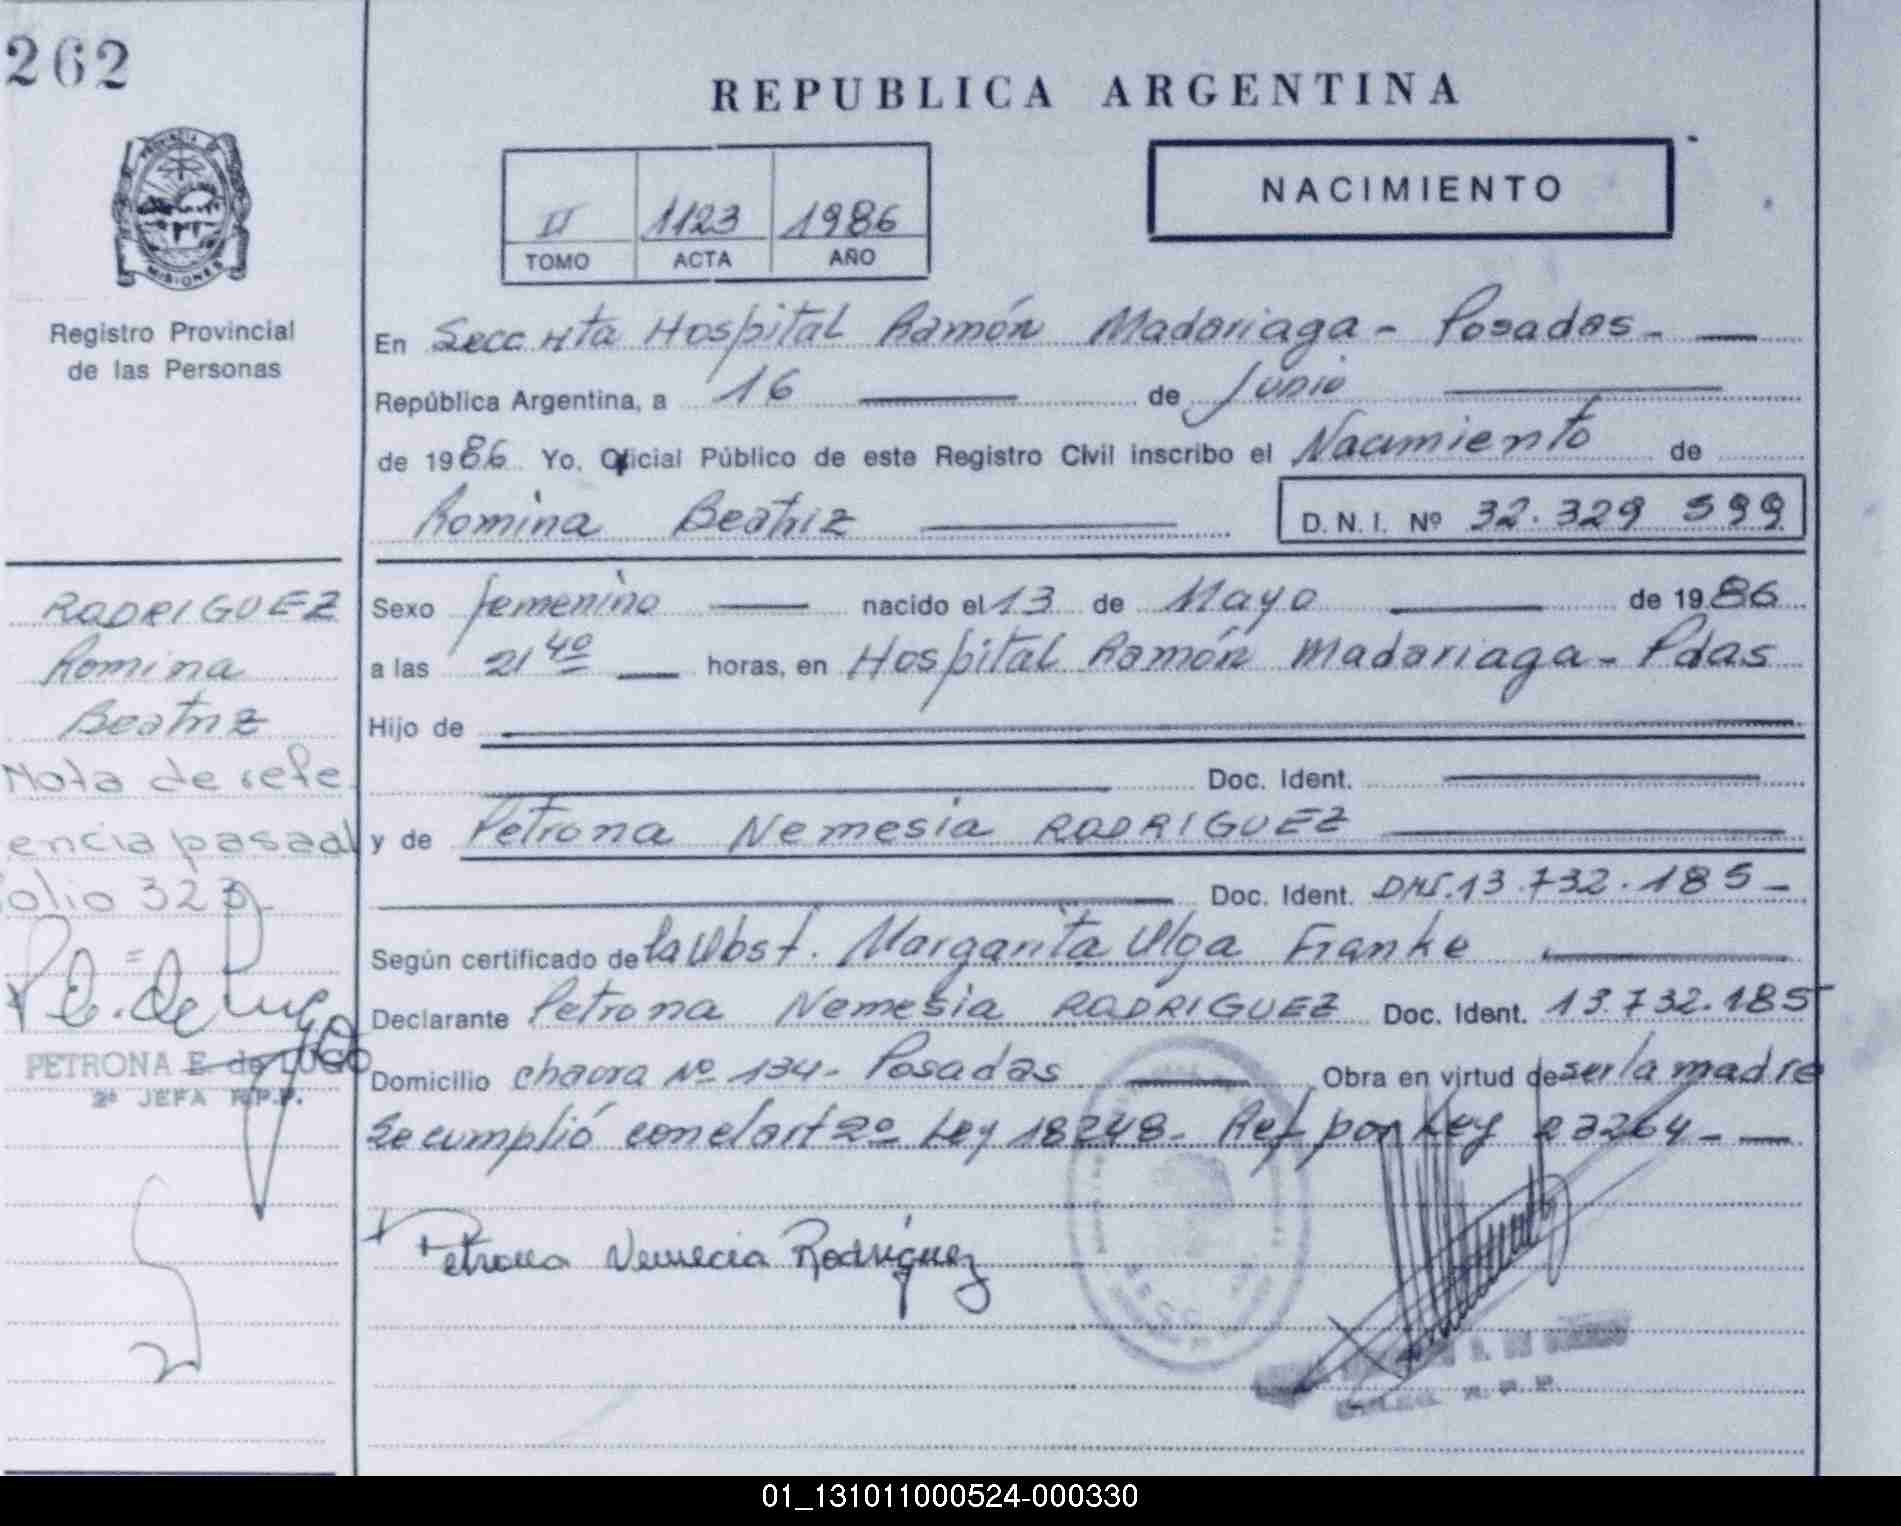 262
REPUBLICA ARGENTINA
PROVINCIA DE
MISIONES
Registro Provincial
de las Personas
II 1123 1986
TOMO ACTA AÑO
NACIMIENTO
En Secc Hta Hospital Ramón Madariaga - Posadas -
República Argentina, a 16 de Junio
de 1986. Yo, Oficial Público de este Registro Civil inscribo el Nacimiento de
Romina Beatriz D. N. I. Nº 32.329 599
Sexo femenino nacido el 13 de Mayo de 1986
a las 21 40 horas, en Hospital Ramón Madariaga - Pdas
Hijo de
Doc. Ident.
y de Petrona Nemesia RODRIGUEZ
Doc. Ident. DNI. 13.732.185 -
Según certificado de la Obst. Margarita Olga Franke
Declarante Petrona Nemesia RODRIGUEZ Doc. Ident. 13.732.185
Domicilio chacra Nº 134 - Posadas Obra en virtud de ser la madre
Se cumplió con el art 2º Ley 18248 - Ref por Ley 23264 -
Petrona Nemecia Rodriguez
RODRIGUEZ
Romina
Beatriz
Nota de refe
encia pasa al
folio 323
PETRONA E de LUGO
2ª JEFA R.P.P.
R. P. P.
01_131011000524-000330